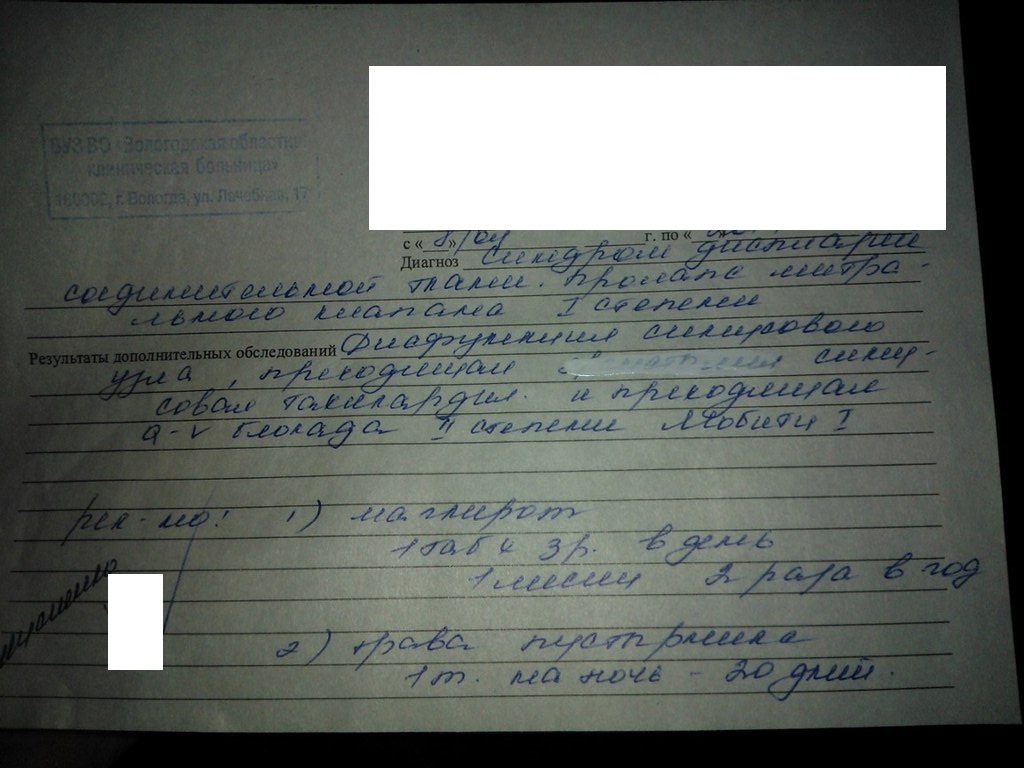 БУЗ ВО «Вологодская областная
клиническая больница»
160002, г. Вологда, ул. Лечебная, 17
с « 8 » г. по «
Диагноз Синдром дисплазии
соединительной ткани. Пролапс митра-
льного клапана I степени
Результаты дополнительных обследований Дисфункция синусового
узла, преходящая сину-
совая тахикардия. и преходящая
a-v блокада II степени Мобитц I
рек-но: 1) магнерот
1 таб х 3 р. в день
1 месяц 2 раза в год
2) трава пустырника
1 т. на ночь - 20 дней.